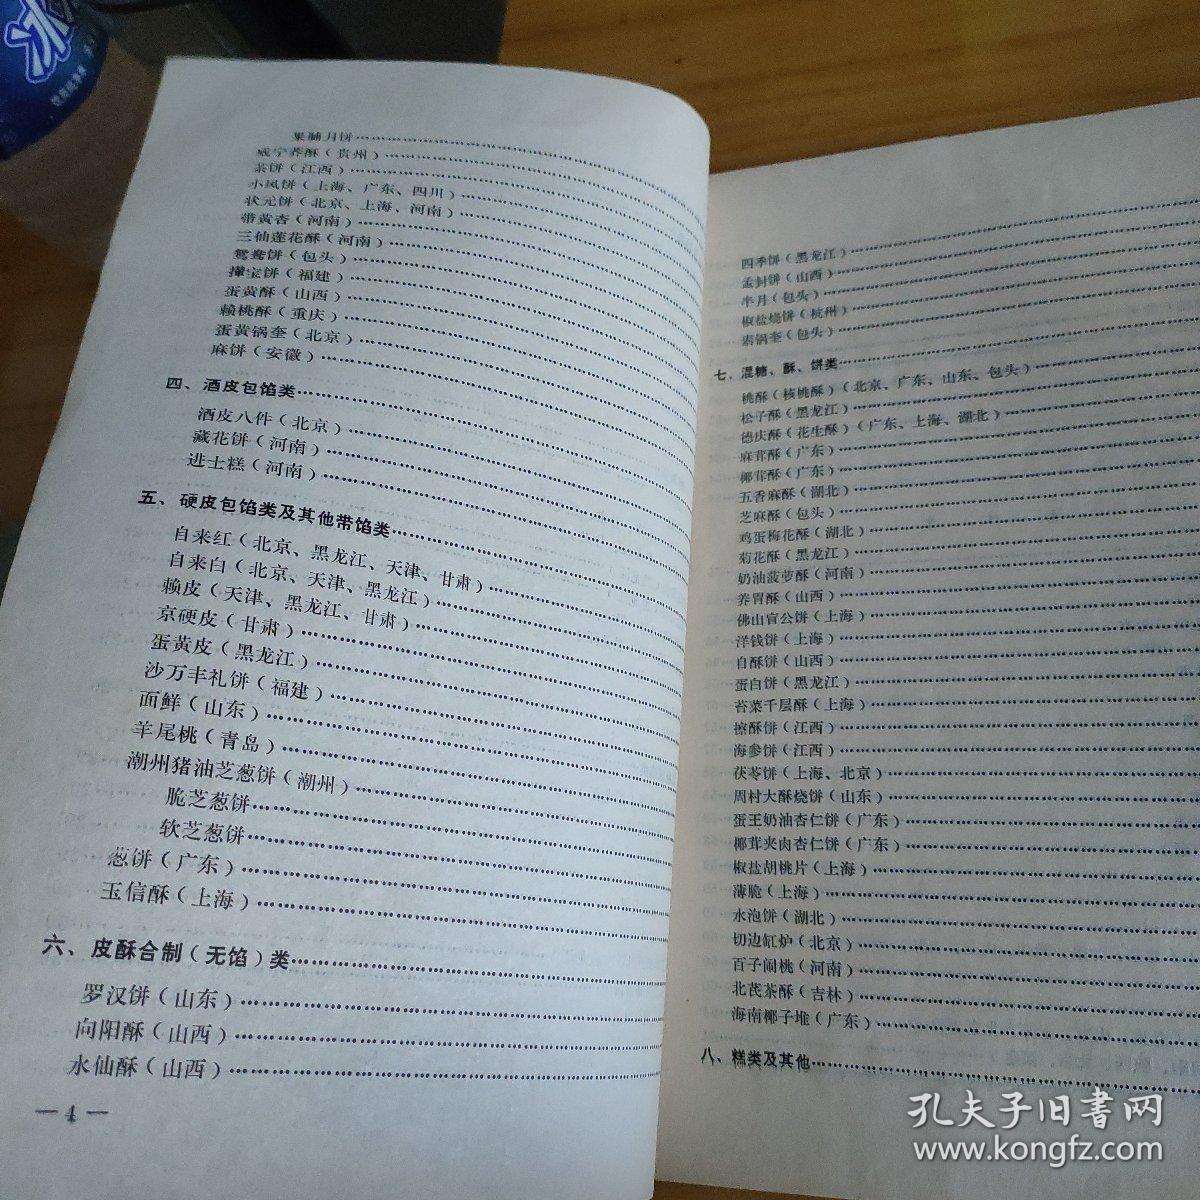 果脯月饼
威宁荞酥(贵州)
茶饼(江西)
小凤饼(上海、广东、四川)
状元饼(北京、上海、河南)
带黄杏(河南)
三仙莲花酥(河南)
鸳鸯饼(包头)
掸宝饼(福建)
蛋黄酥(山西)
赖桃酥(重庆)
蛋黄锅奎(北京)
麻饼(安徽)
四、酒皮包馅类
酒皮八件(北京)
藏花饼(河南)
进士糕(河南)
五、硬皮包馅类及其他带馅类
自来红(北京、黑龙江、天津、甘肃)
自来白(北京、天津、黑龙江)
赖皮(天津、黑龙江、甘肃)
京硬皮(甘肃)
蛋黄皮(黑龙江)
沙万丰礼饼(福建)
面鲜(山东)
羊尾桃(青岛)
潮州猪油芝葱饼(潮州)
脆芝葱饼
软芝葱饼
葱饼(广东)
玉信酥(上海)
六、皮酥合制(无馅)类
罗汉饼(山东)
向阳酥(山西)
水仙酥(山西)
— 4 —
四季饼(黑龙江)
孟封饼(山西)
半月(包头)
椒盐烧饼(杭州)
素锅奎(包头)
七、混糖、酥、饼类
桃酥(核桃酥)(北京、广东、山东、包头)
松子酥(黑龙江)
德庆酥(花生酥)(广东、上海、湖北)
麻茸酥(广东)
椰茸酥(广东)
五香麻酥(湖北)
芝麻酥(包头)
鸡蛋梅花酥(湖北)
菊花酥(黑龙江)
奶油菠萝酥(河南)
养胃酥(山西)
佛山盲公饼(上海)
洋钱饼(上海)
自酥饼(山西)
蛋白饼(黑龙江)
苔菜千层酥(上海)
擦酥饼(江西)
海参饼(江西)
茯苓饼(上海、北京)
周村大酥烧饼(山东)
蛋王奶油杏仁饼(广东)
椰茸夹肉杏仁饼(广东)
椒盐胡桃片(上海)
薄脆(上海)
水泡饼(湖北)
切边缸炉(北京)
百子闹桃(河南)
北芪茶酥(吉林)
海南椰子堆(广东)
八、糕类及其他
孔夫子旧书网
www.kongfz.com